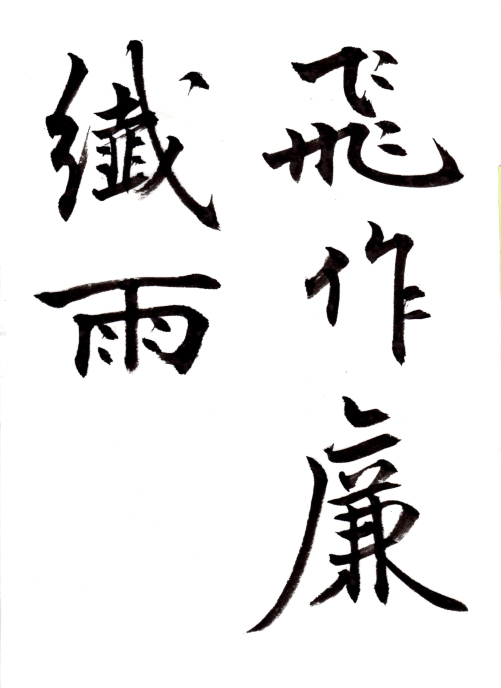 飛作廉
纖雨